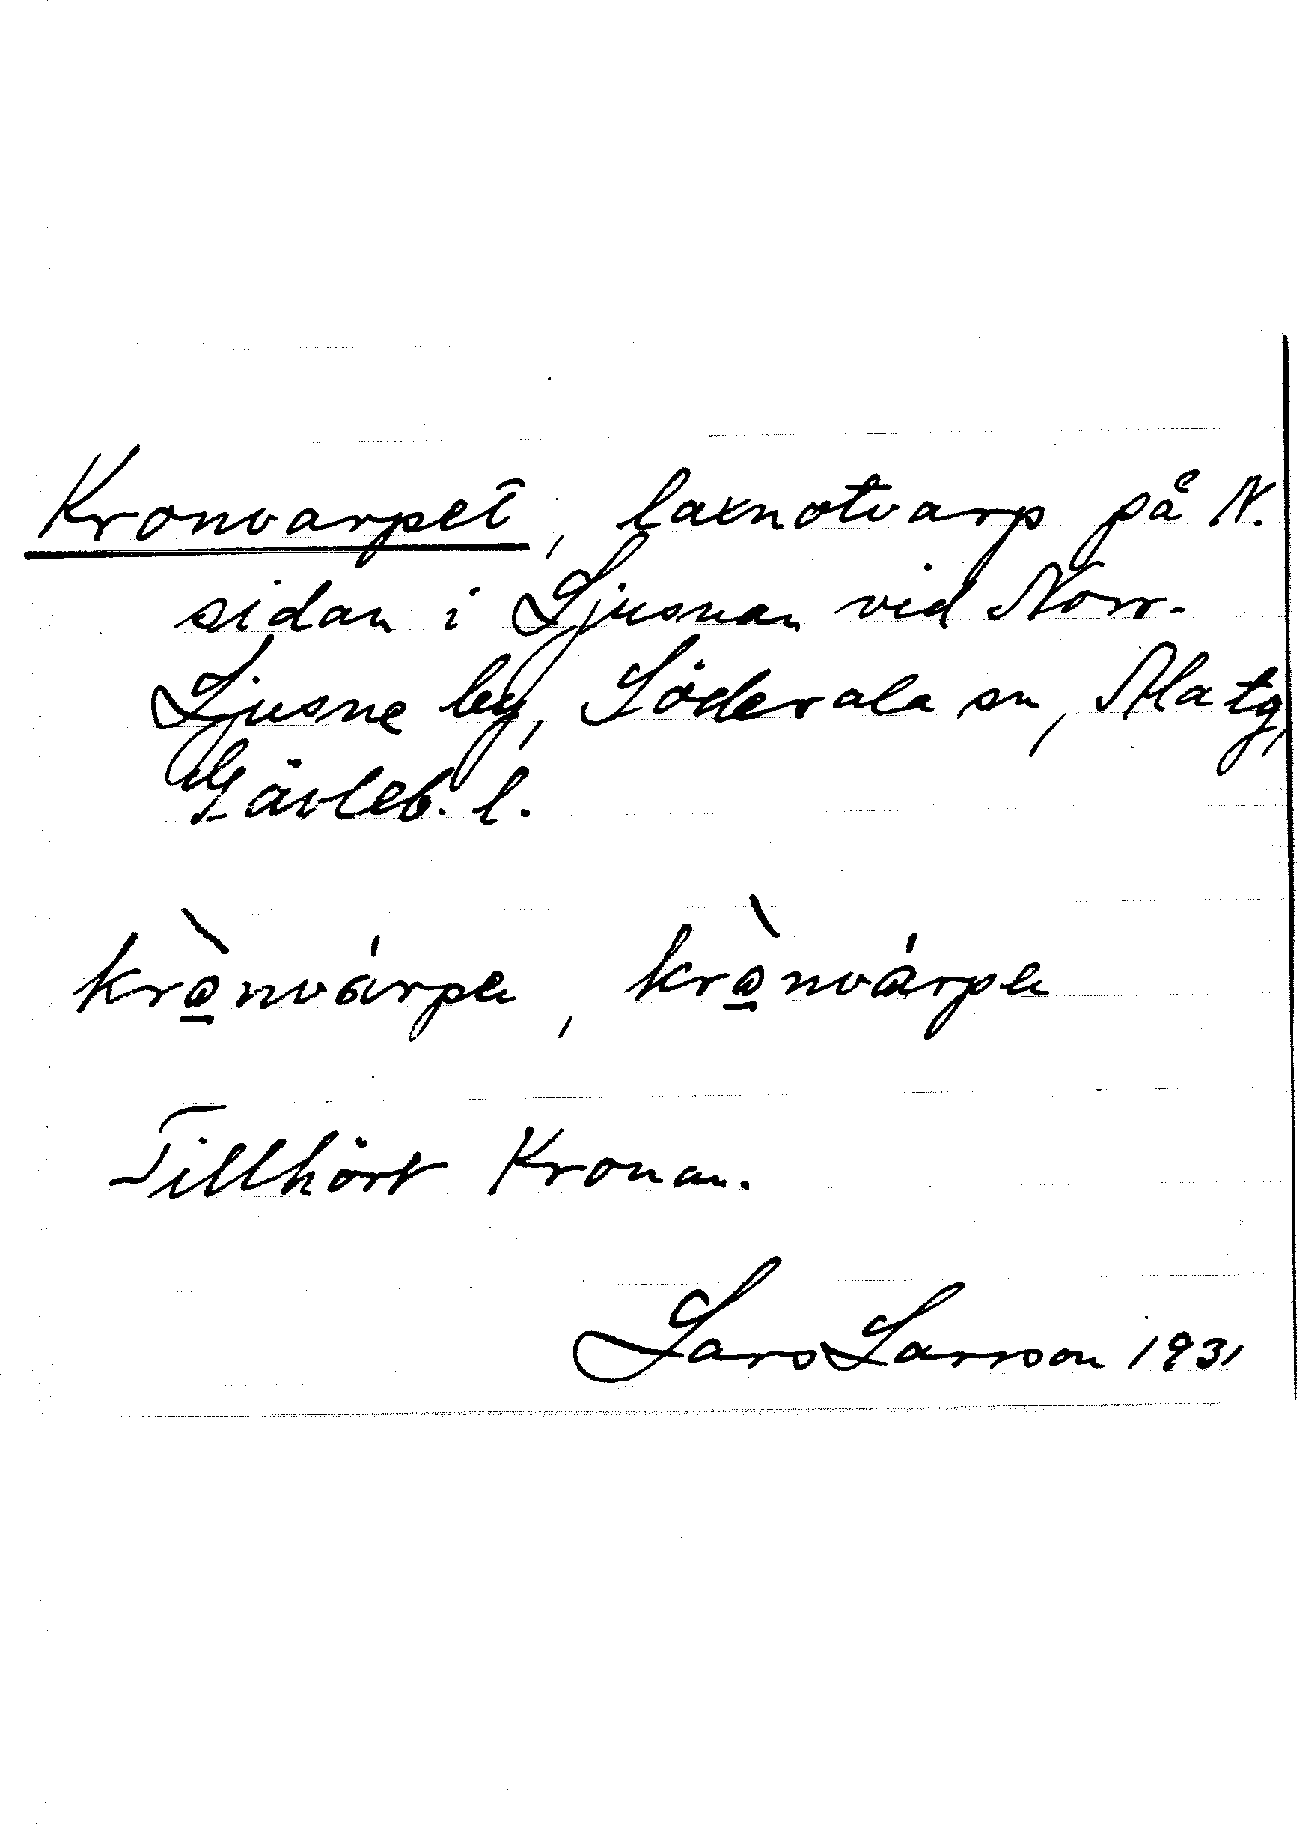 Kronvarpet, laxnotvarp på N.
sidan i Ljusnan vid Norr-
Ljusne by, Söderala sn, Ala tg,
Gävleb. l.
krò̱nvárpa, krò̱nvárpa
Tillhört Kronan.
Lars Larsson 1931